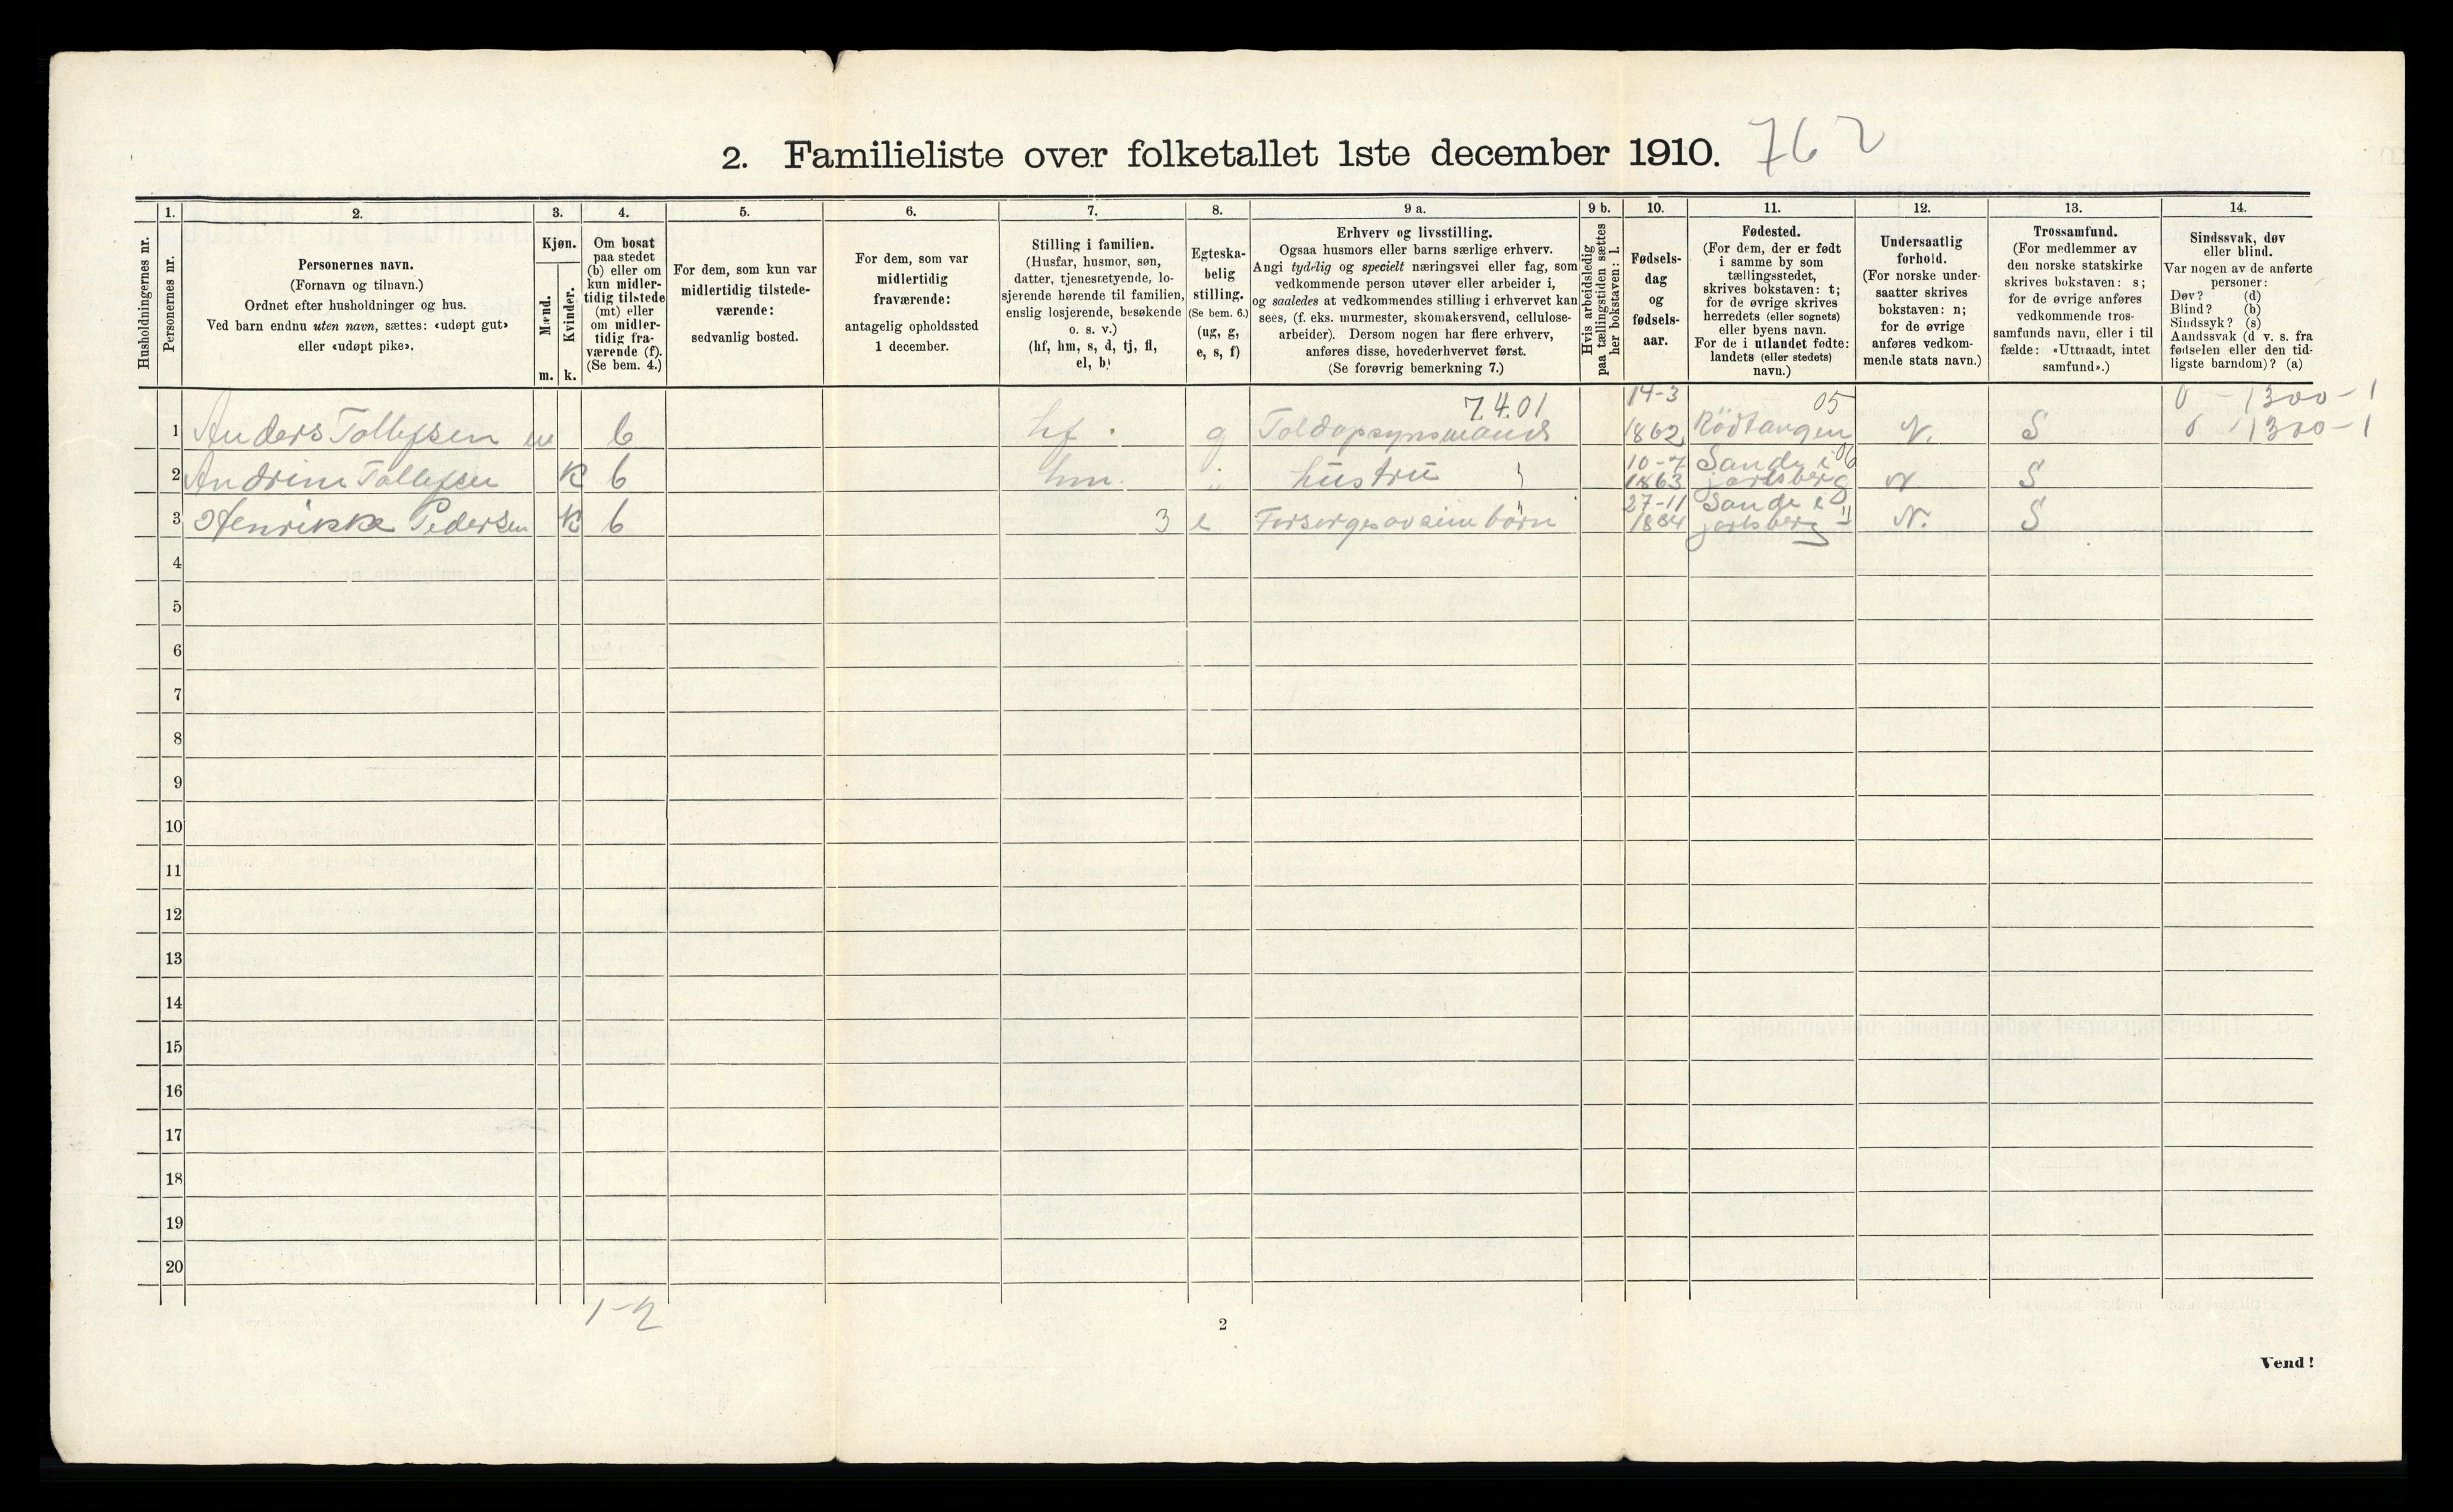 2. Familieliste over folketallet 1ste december 1910. 762
Husholdningernes nr.
1.
Personernes nr.
2.
Personernes navn.
(Fornavn og tilnavn.)
Ordnet efter husholdninger og hus.
Ved barn endnu uten navn, sættes: «udøpt gut»
eller «udøpt pike».
3.
Kjøn.
Mænd.
Kvinder.
m. k.
4.
Om bosat
paa stedet
(b) eller om
kun midler-
tidig tilstede
(mt) eller
om midler-
tidig fra-
værende (f).
(Se bem. 4.)
5.
For dem, som kun var
midlertidig tilstede-
værende:
sedvanlig bosted.
6.
For dem, som var
midlertidig
fraværende:
antagelig opholdssted
1 december.
7.
Stilling i familien.
(Husfar, husmor, søn,
datter, tjenestetyende, lo-
sjerende hørende til familien,
enslig losjerende, besøkende
o. s. v.)
(hf, hm, s, d, tj, fl,
el, b)
8.
Egteska-
belig
stilling.
(Se bem. 6.)
(ug, g,
e, s, f)
9 a.
Erhverv og livsstilling.
Ogsaa husmors eller barns særlige erhverv.
Angi tydelig og specielt næringsvei eller fag, som
vedkommende person utøver eller arbeider i,
og saaledes at vedkommendes stilling i erhvervet kan
sees, (f. eks. murmester, skomakersvend, cellulose-
arbeider). Dersom nogen har flere erhverv,
anføres disse, hovederhvervet først.
(Se forøvrig bemerkning 7.)
9 b.
Hvis arbeidsledig
paa tællingstiden sættes
her bokstaven: l.
10.
Fødsels-
dag
og
fødsels-
aar.
11.
Fødested.
(For dem, der er født
i samme by som
tællingsstedet,
skrives bokstaven: t;
for de øvrige skrives
herredets (eller sognets)
eller byens navn.
For de i utlandet fødte:
landets (eller stedets)
navn.)
12.
Undersaatlig
forhold.
(For norske under-
saatter skrives
bokstaven: n;
for de øvrige
anføres vedkom-
mende stats navn.)
13.
Trossamfund.
(For medlemmer av
den norske statskirke
skrives bokstaven: s;
for de øvrige anføres
vedkommende tros-
samfunds navn, eller i til
fælde: «Uttraadt, intet
samfund».)
14.
Sindssvak, døv
eller blind.
Var nogen av de anførte
personer:
Døv? (d)
Blind? (b)
Sindssyk? (s)
Aandssvak (d v. s. fra
fødselen eller den tid-
ligste barndom)? (a)
7.4.01 14-3 05 0 - 1300 - 1
1 Anders Tollefsen m b hf. g Toldopsynsmand 1862 Rödtangen N. S 1300 - 1
10-7 Sande i 06
2 Andrine Tollefsen k b hm. " hustru 1863 jarlsberg N S
27-11 Sande i
3 Henrikke Pedersen k b 3 e Forsørges av sine börn 1834 jarlsberg " N. S
4
5
6
7
8
9
10
11
12
13
14
15
16
17
18
19
20
1-2
2
Vend!